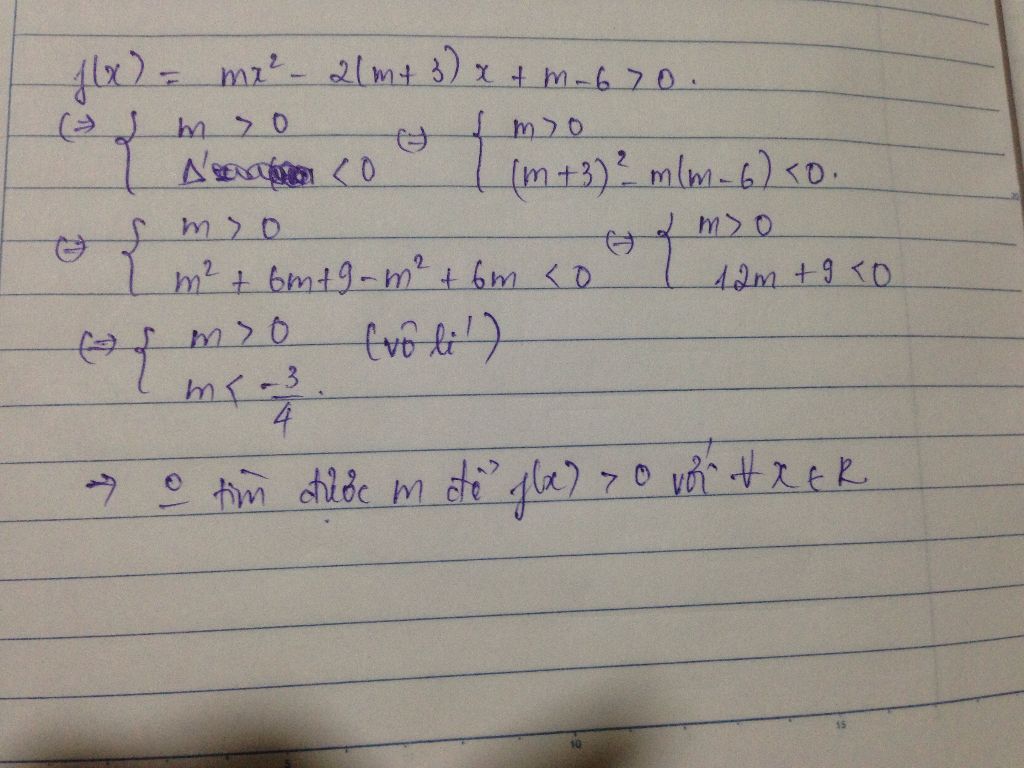 f(x) = mx² - 2(m+3)x + m-6 > 0.
(=) { m > 0 ; Δ' < 0 (=) { m > 0 ; (m+3)² - m(m-6) < 0.
(=) { m > 0 ; m² + 6m + 9 - m² + 6m < 0 (=) { m > 0 ; 12m + 9 < 0
(=) { m > 0 ; m < -3/4. (vô lí)
→ o tìm được m để f(x) > 0 với ∀ x ∈ R
5 10 15 20